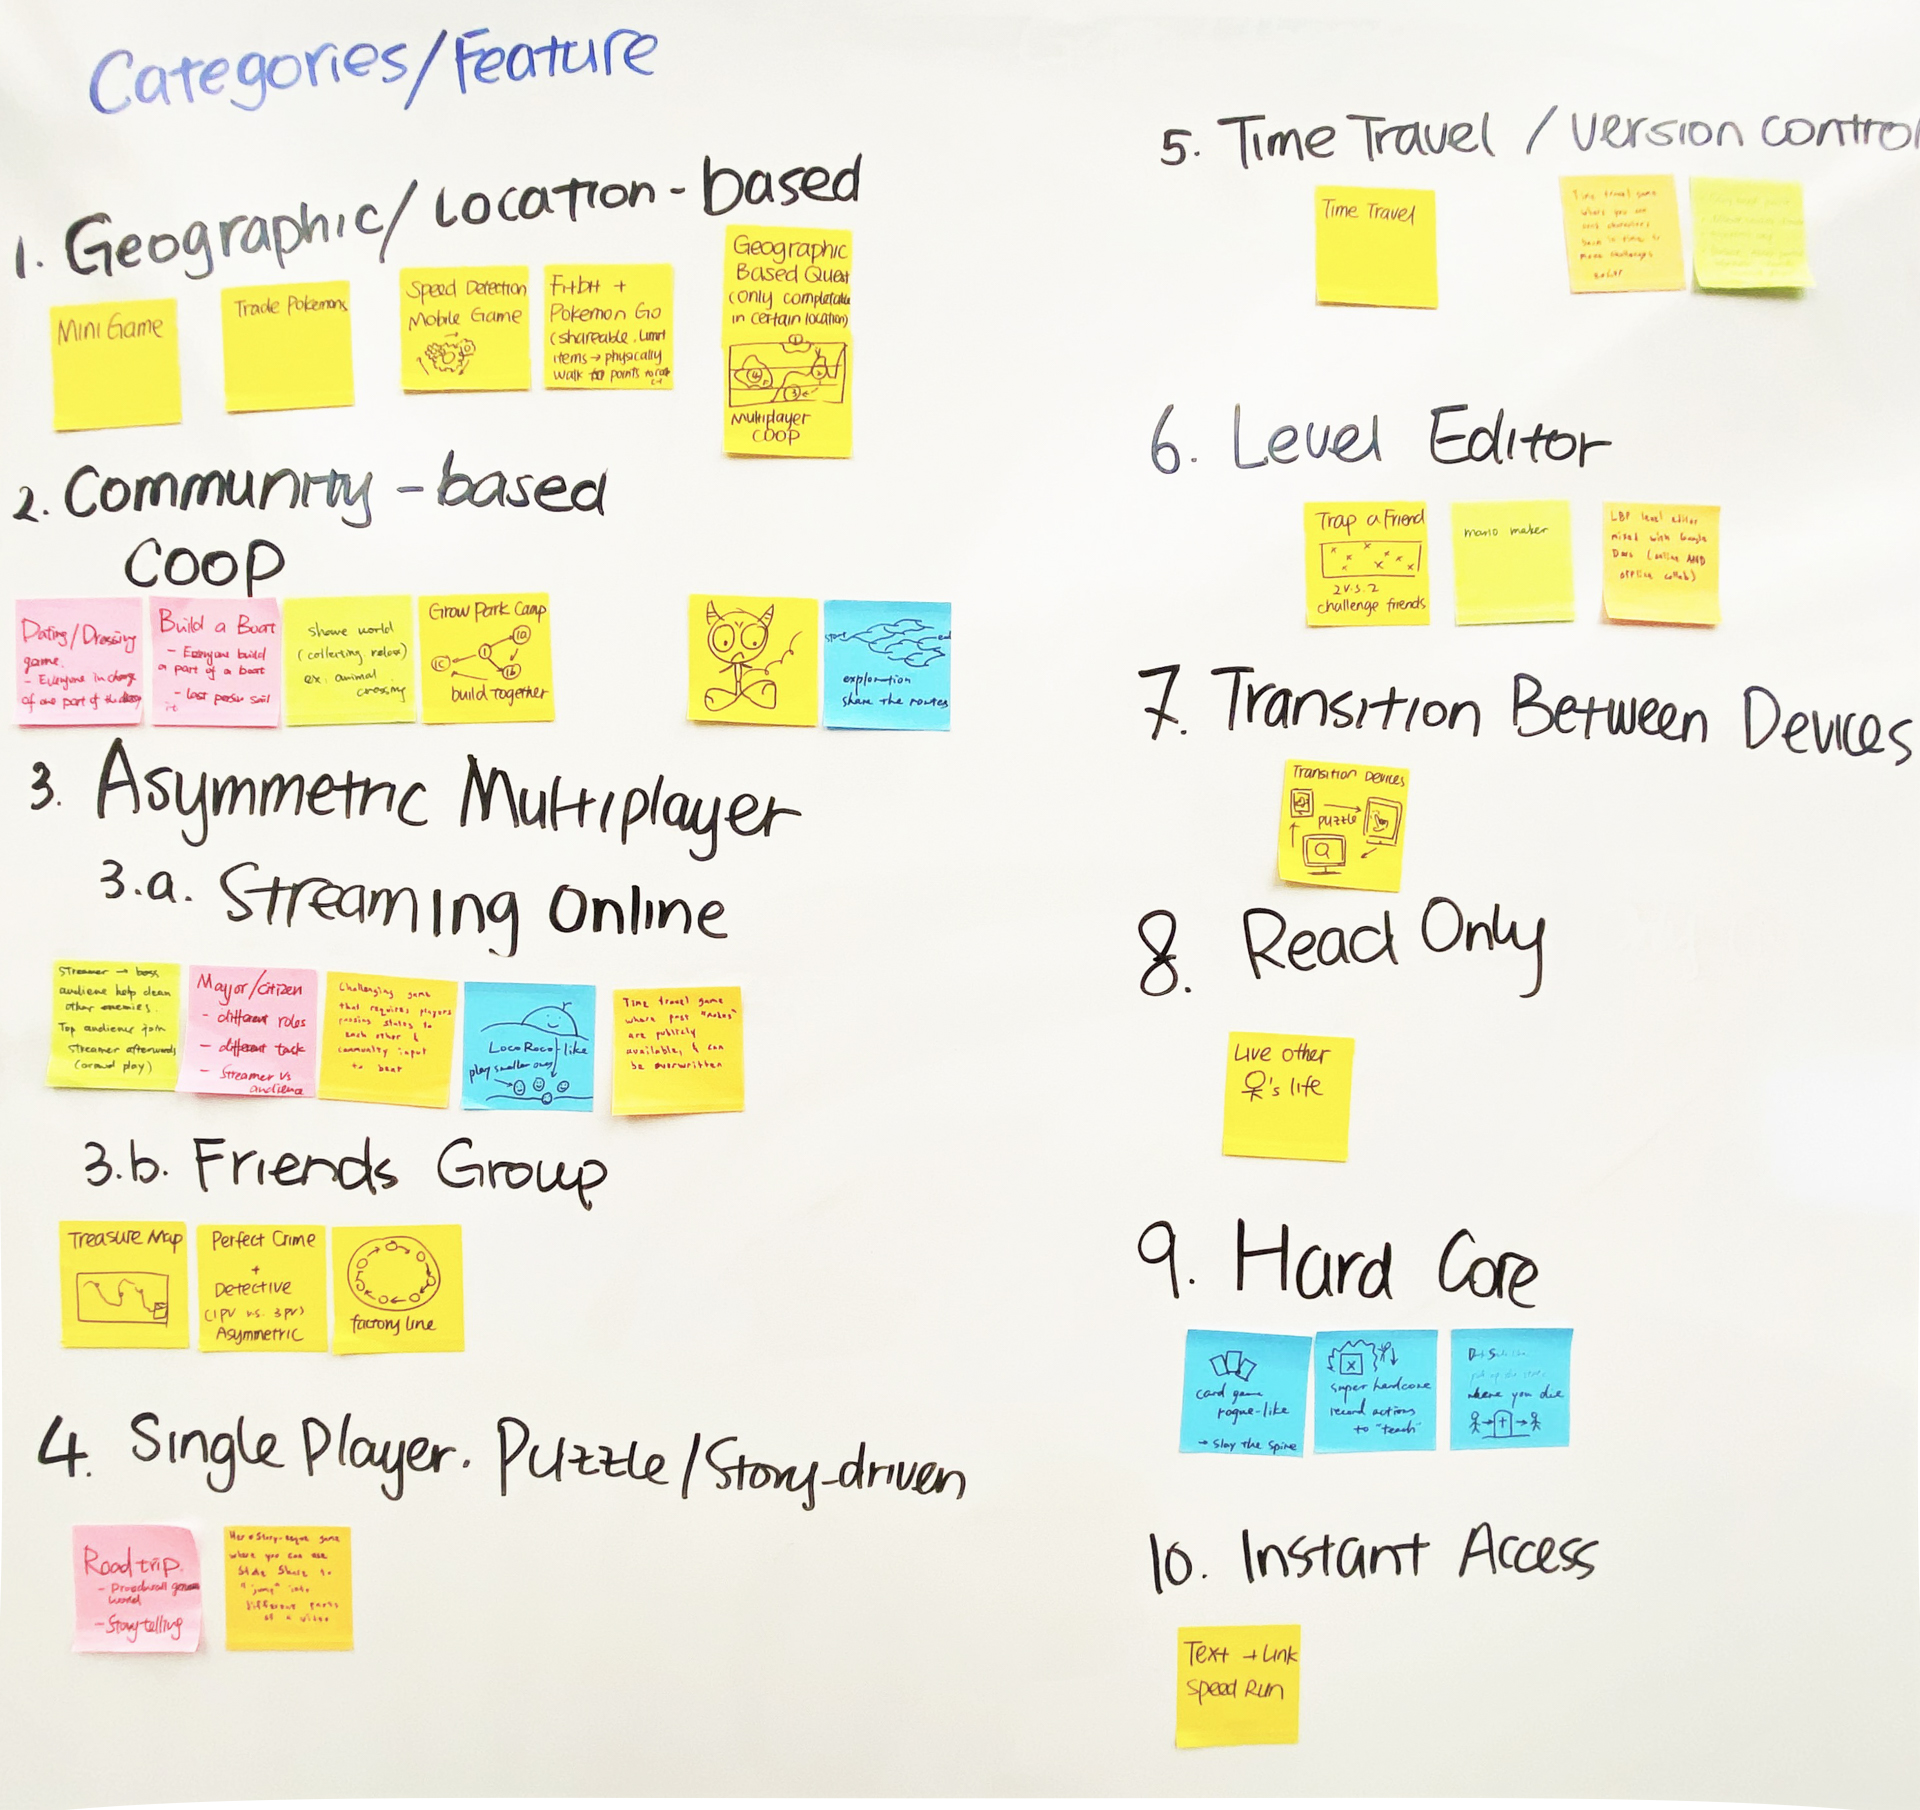 Categories/Feature
1. Geographic/Location-based
Mini Game
Trade Pokemons
Speed Detection
Mobile Game
Fitbit +
Pokemon Go
(shareable. Limit
items → physically
walk to points to
Geographic
Based Quest
(only completable
in certain location)
Multiplayer
COOP
2. Community-based
COOP
Dating/Dressing
game.
- Everyone in charge
of one part of the
Build a Boat
- Everyone build
a part of a boat
- Last person sail
it
share world
(collecting. relax)
ex: animal
crossing
Grow Park Camp
1
1a
1b
1c
build together
start
end
exploration
share the routes
3. Asymmetric Multiplayer
3.a. Streaming Online
Streamer → boss
audience help clean
other enemies.
Top audience join
streamer afterwards
(crowd play)
Mayor/citizen
- different roles
- different task
- Streamer vs
audience
Challenging game
that requires players
passing states to
each other &
community input
to beat
LocoRoco-like
play smaller ones
Time travel game
where past "notes"
are publicly
available, & can
be overwritten
3.b. Friends Group
Treasure Map
Perfect Crime
+
Detective
(1PV vs. 3PV)
Asymmetric
factory line
4. Single Player. Puzzle/Story-driven
Road trip.
world
- Story telling
Her Story-esque game
where you can use
State Share to
"jump" into
different parts
of a video
5. Time Travel / Version control
Time Travel
Time travel game
where you can
send characters
back in time to
make challenges
easier
6. Level Editor
Trap a Friend
2 v.s. 2
challenge friends
mario maker
LBP level editor
mixed with Google
Docs (online AND
offline collab)
7. Transition Between Devices
Transition Devices
puzzle
8. Read Only
Live other
's life
9. Hard Core
card game
rogue-like
→ Slay the Spire
super hardcore
record actions
to "teach"
where you die
10. Instant Access
Text → Link
Speed Run